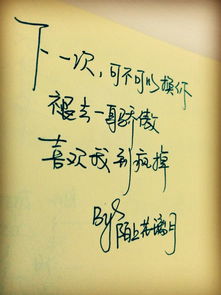 下一次,可不可以换你
褪去一身骄傲
喜欢我到疯掉
By 陌上若离月